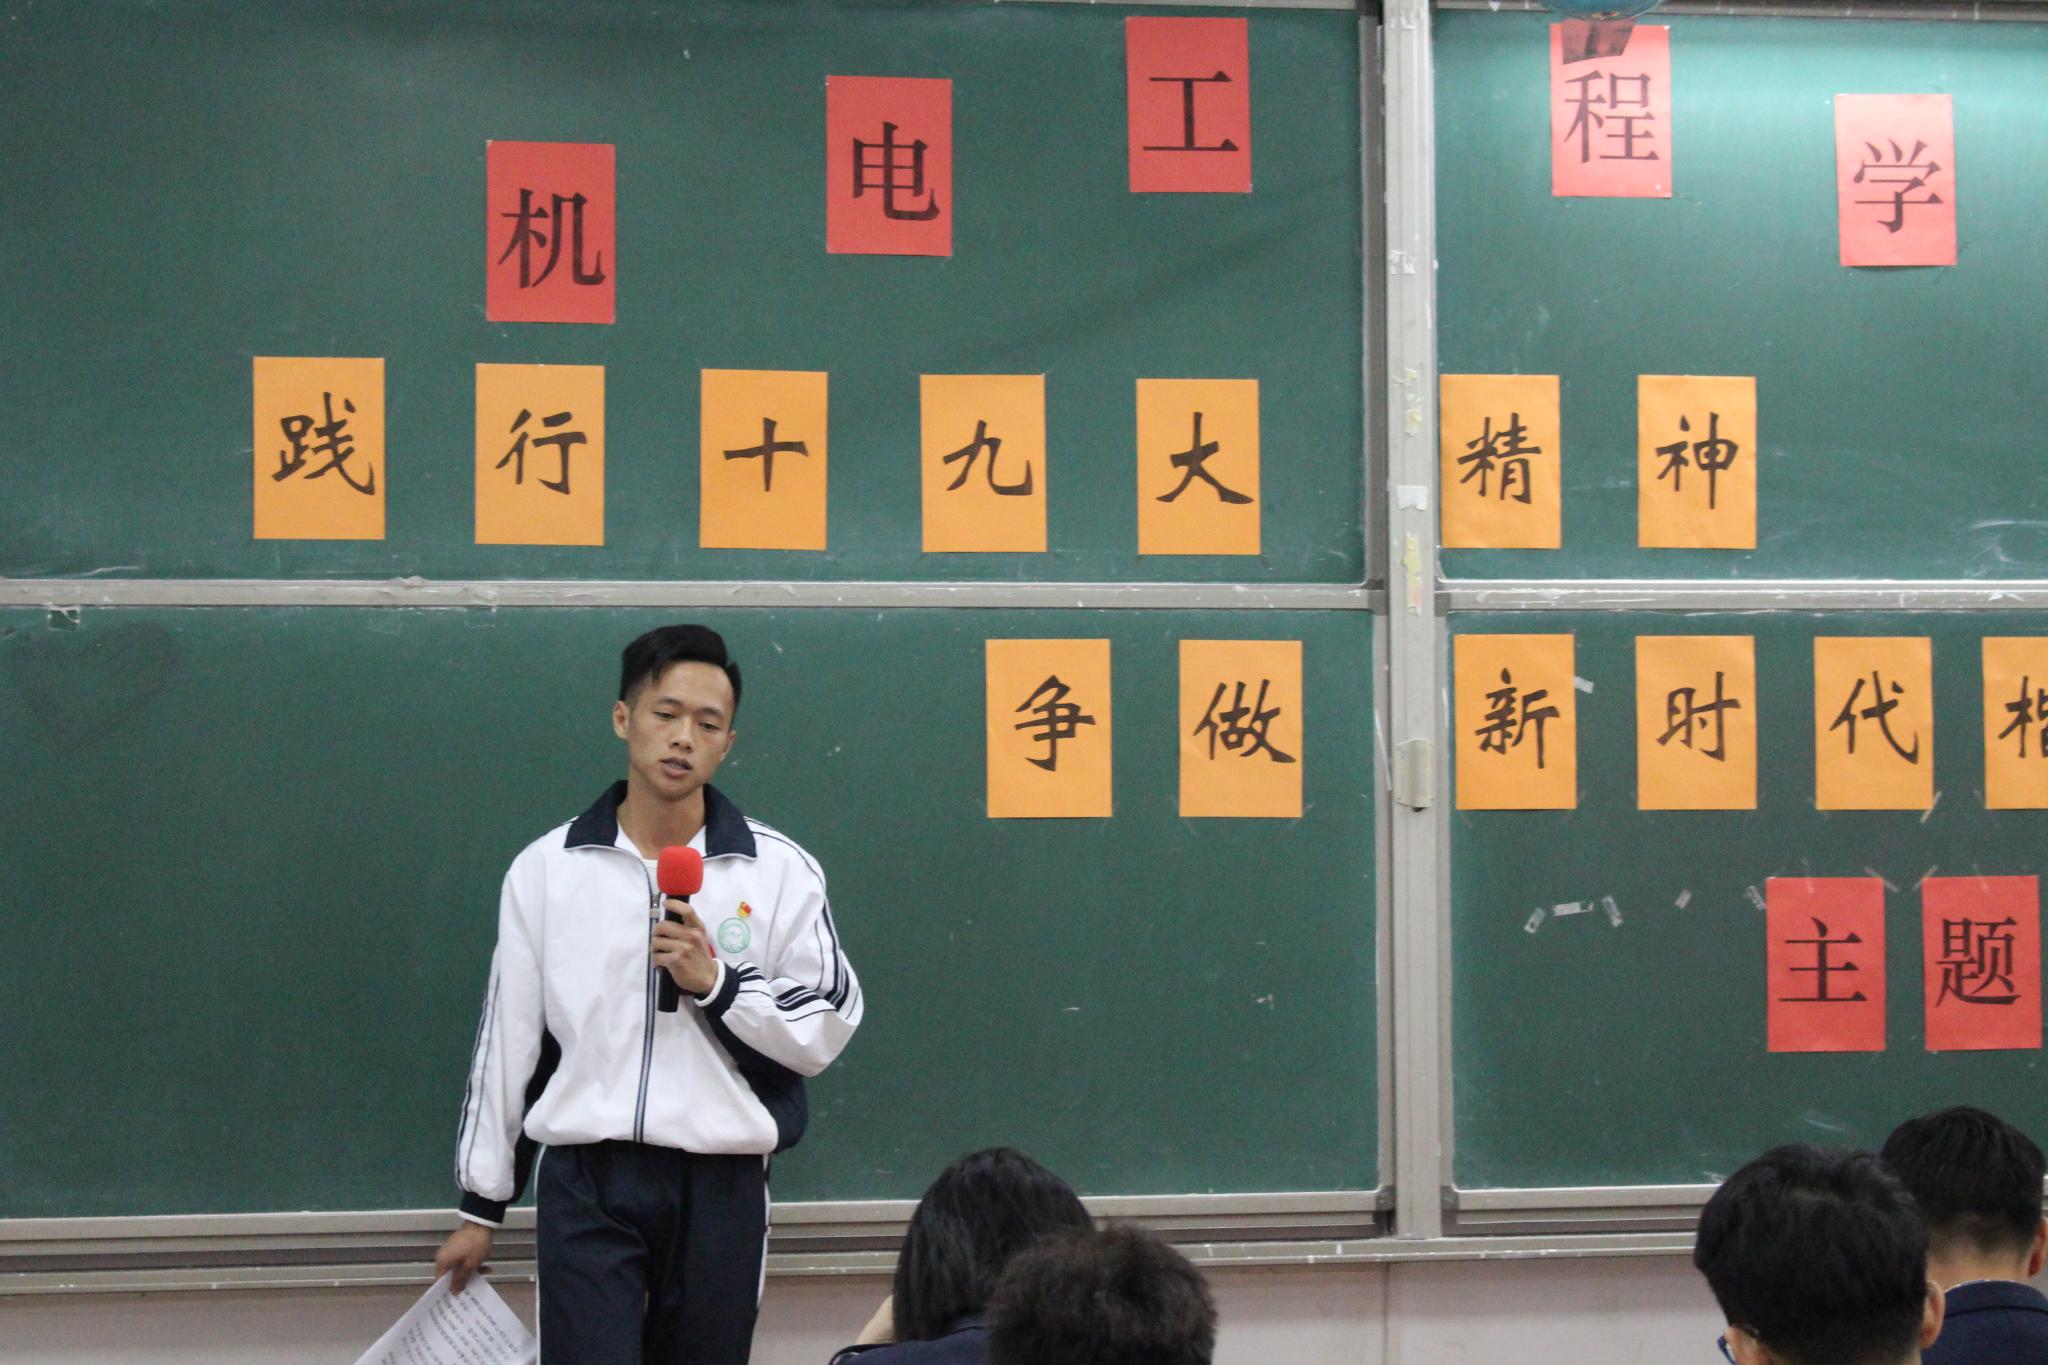 机电工程学
践行十九大精神
争做新时代
主题